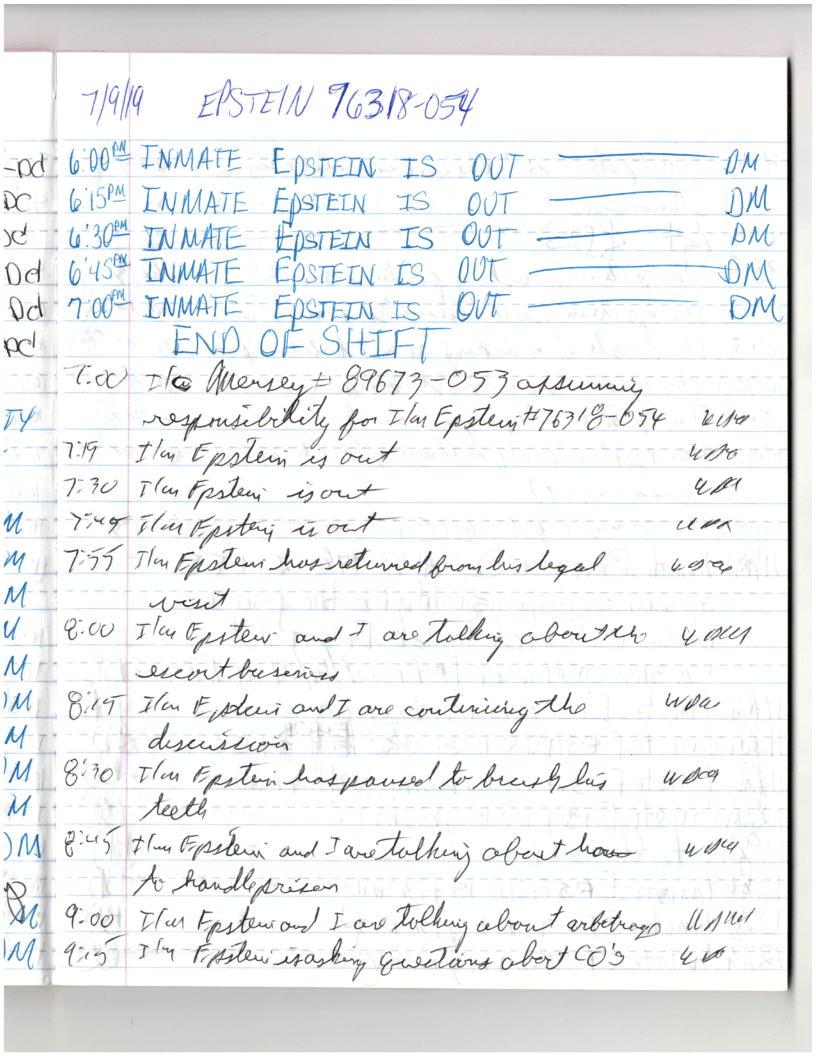 7/9/19 EPSTEIN 76318-054
-Dd 6:00PM INMATE EPSTEIN IS OUT DM
DC 6:15PM INMATE EPSTEIN IS OUT DM
6:30PM INMATE EPSTEIN IS OUT DM
Dd 6:45PM INMATE EPSTEIN IS OUT DM
Dd 7:00PM INMATE EPSTEIN IS OUT DM
END OF SHIFT
7:00 I/m # 89673-053 assuming
responsibility for I/m Epstein #76318-054
I/m Epstein is out
7:30 I/m Epstein is out
M 7:45 I/m Epstein is out
M 7:55 I/m Epstein has returned from his legal
M visit
8:00 I/m Epstein and I are talking about the
M escort business
M 8:15 I/m Epstein and I are continuing the
M discussion
M 8:30 I/m Epstein has paused to brush his
M teeth
)M 8:45 I/m Epstein and I are talking about how
to handle prison
M 9:00 I/m Epstein and I are talking about arbetrage
M 9:15 I/m Epstein is asking questions about CO's